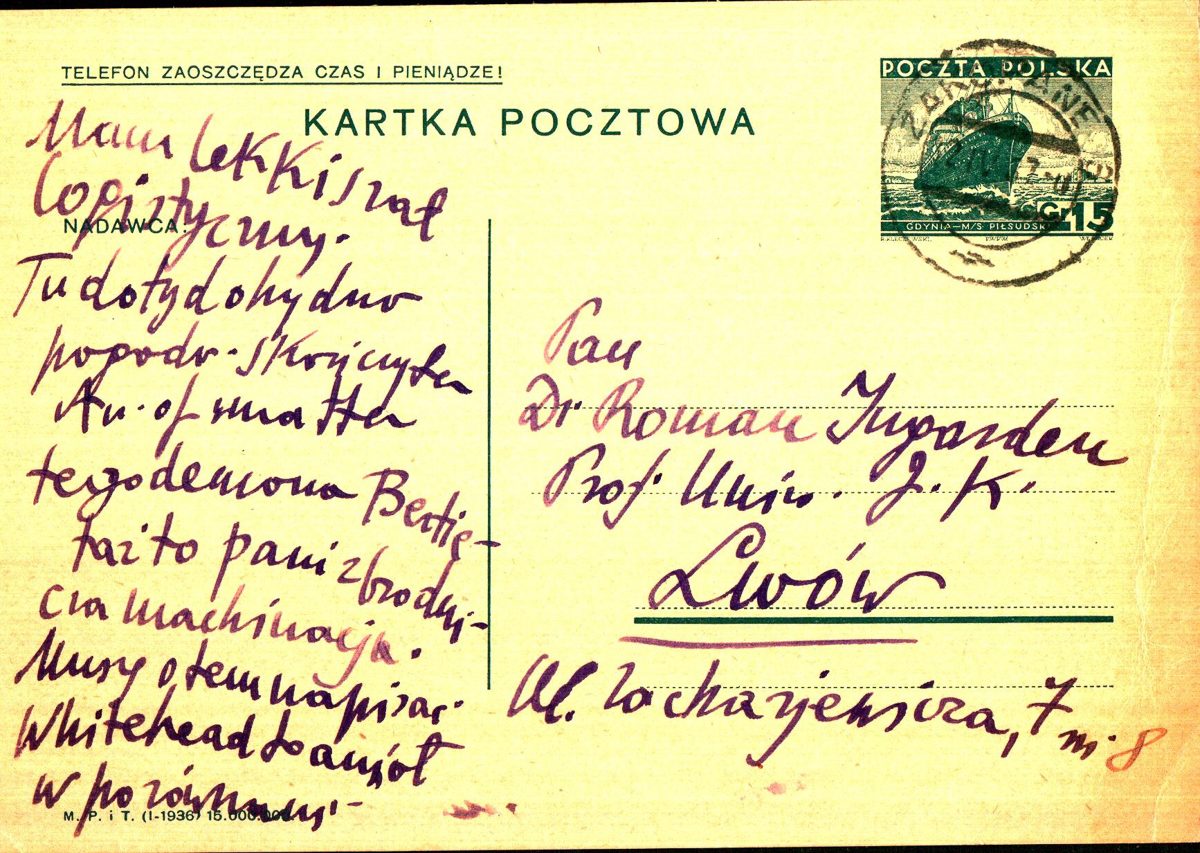 TELEFON ZAOSZCZĘDZA CZAS I PIENIĄDZE!
KARTKA POCZTOWA
POCZTA POLSKA
ZAKOPANE
Gr. 15
GDYNIA—M/S PIŁSUDSKI
NADAWCA:
Mam lekki szał
logistyczny.
Tu dotąd ohydna
pogoda. Skończyłem
An. of matter
tego demona Bertie,
taż to pani zbrodni-
cza machinacja.
Muszę o tem napisać.
Whitehead to anioł
w porównani-
M. P. i T. (I-1936) 15.000.000.
Pan
Dr Roman Ingarden
Prof. Uniw. J. K.
Lwów
Ul. Zacharjewicza, 7 m. 8